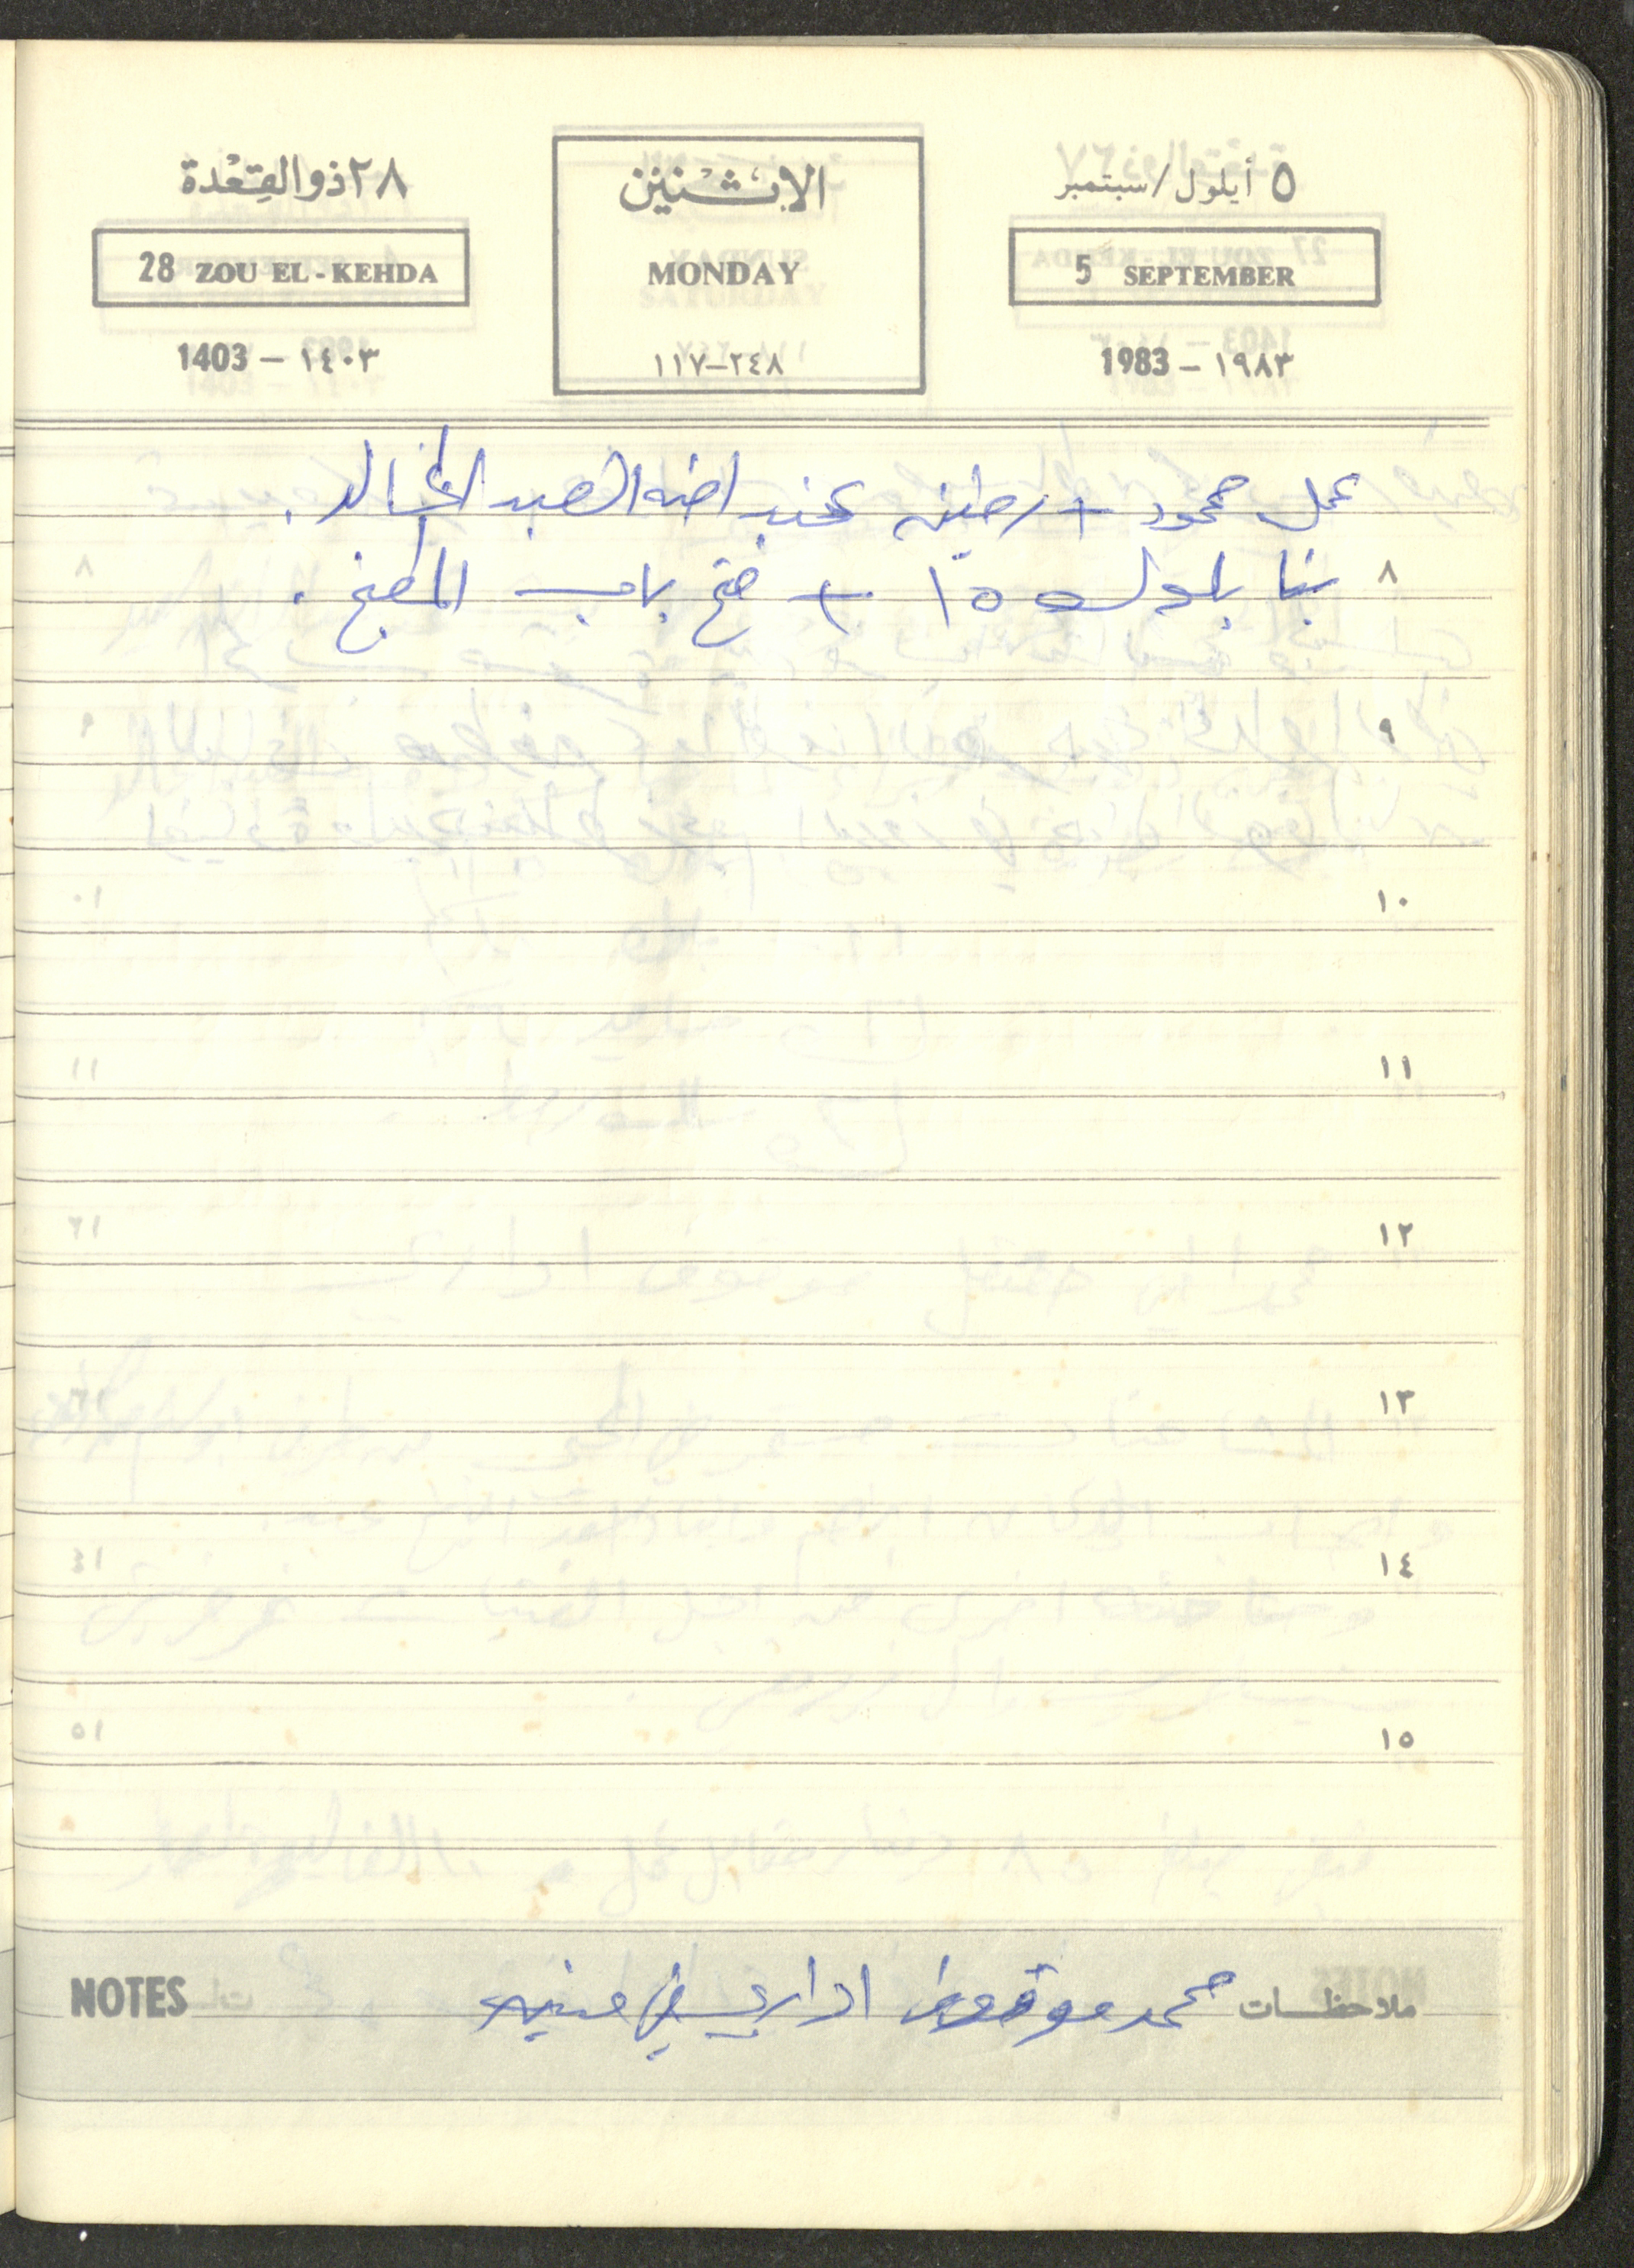 ٥ أيلول/سبتمبر
5 SEPTEMBER
1983 – ١٩٨٣
الاثنين
MONDAY
٢٤٨–١١٧
٢٨ ذو القعدة
28 ZOU EL-KEHDA
1403 – ١٤٠٣
عمل محمود + عند الخالد.
٨ بنا بلوك ١٥ + فتح باب المطبخ.
٩
١٠
١١
١٢
١٣
١٤
١٥
ملاحظات محمد موقوف اداري في NOTES